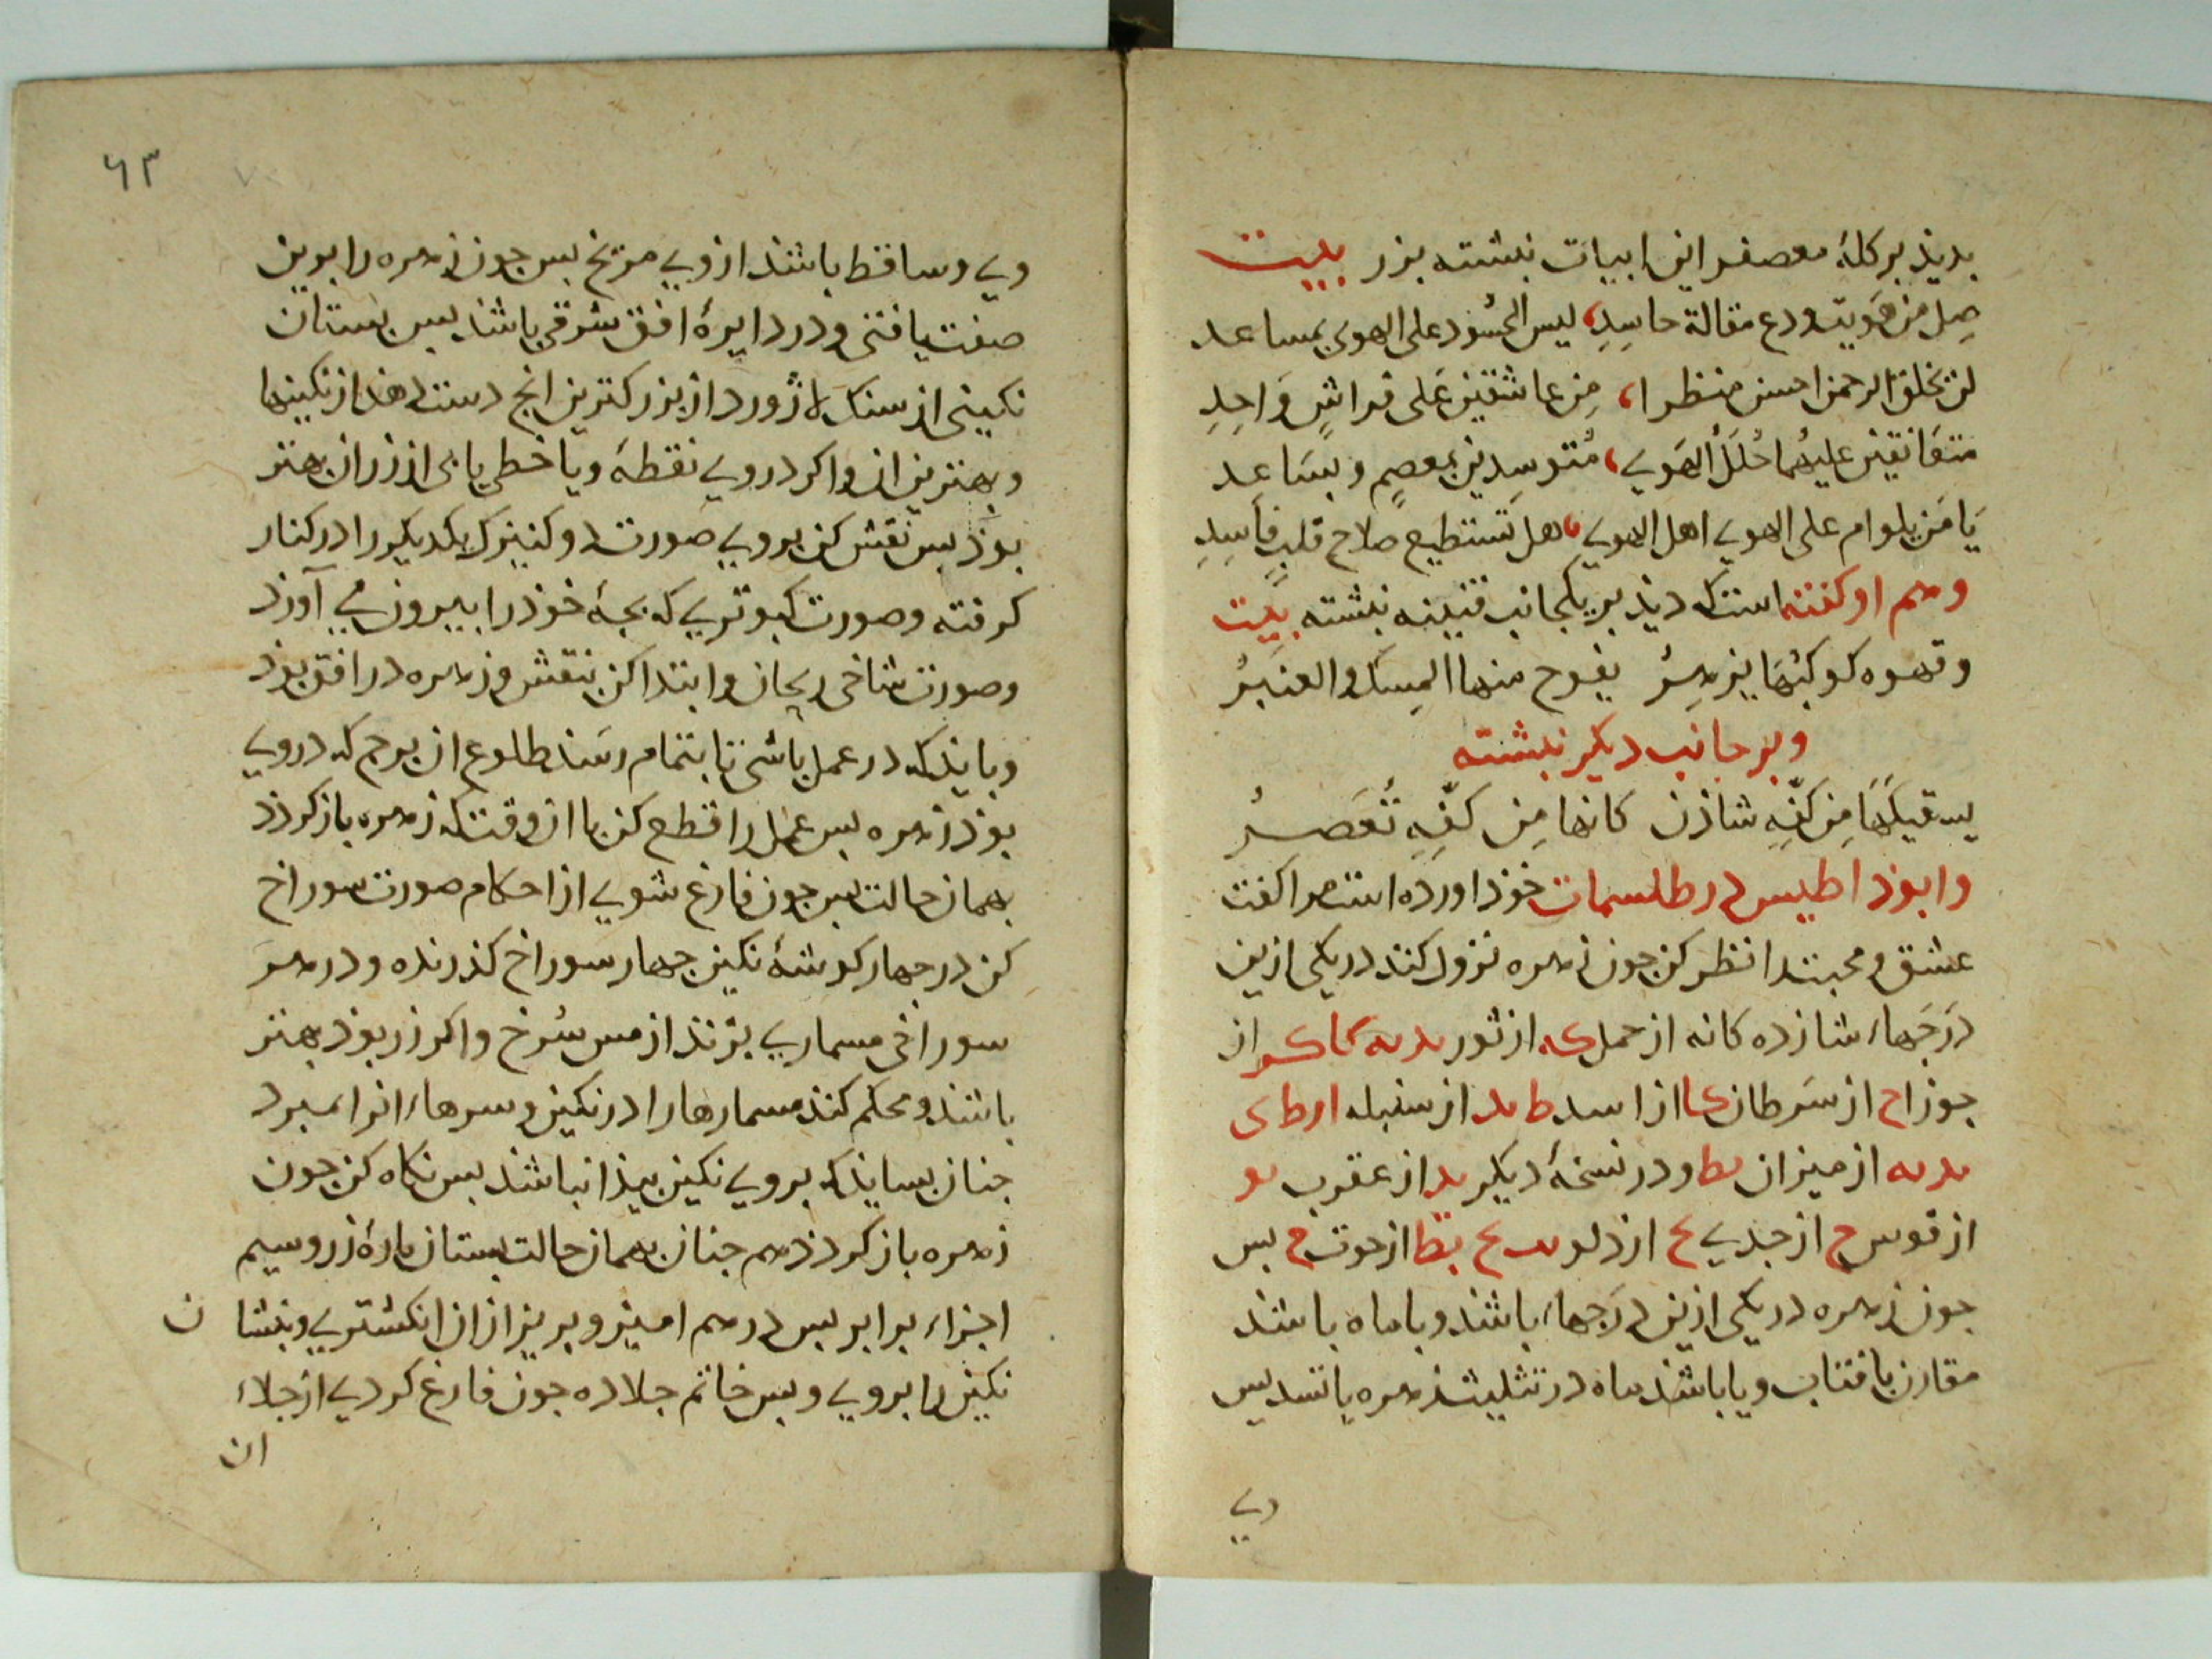 بدیذ بر کلهٔ معصفر این ابیات نبشته بزر بیت
صِل من هَویتَ ودع مقالة حاسِدِ، لیس الحسُود علی الهوی بمساعد
لن یخلق الرحمن احسن منظرا، مِن عاشقین عَلی فراشٍ وَاحِدِ
متعَانقین علیهُما حُلَلُ الهَوی، مُتوسِدین بمعصمٍ وبسَاعِد
یَا مَن یلوام علی الهوی اهل الهوی، هل تَستطیع صلاح قلبٍ فاسِدِ
وهم او کفته است که دیذ بر یکجانب قنینه نبشته بیت
وقهوه کوکبُهَا یزهِرُ یفوح منها المِسک والعنبَرُ
وبر جانب دیکر نبشته
یسقیکهَا مِن کفِّهِ شاذن کانها مِن کفِّهِ تُعَصرُ
وابوذاطیس در طلسمات خوذ اورده است مرا کفت
عشق و محبت را نظر کن جون زهره نزول کند در یکی ازین
دَرَجَهاء شازده کانه از حمل که از ثور ید یه کا کو از
جوزا ح از سَرطان کا از اسد ط ید از سنبله ا ر ط ی
ید یه از میزان یط و در نسخهٔ دیکر ید از عقرب یو
از قوس ح از جدی ع از دلو یح یط از حوت ح بس
جون زهره در یکی ازین دَرَجهاء باشد و با ماه باشد
مقارن بافتاب و یا باشد ماه در تثلیث زهره یا تسدیس
وی
٦٣
وی و ساقط باشذ از وی مریخ بس جون زهره را بدین
صفت یافتی و در دایرهٔ افق شرقی باشذ بس بستان
نکینی از سنک لاژورد از بزرکترین انج دست دهد از نکینها
و بهترین ان و اکر در وی نقطهٔ و یا خطی یابی از زر ان بهتر
بوذ بس نقش کن بروی صورت دو کنیزک یکدیکر را در کنار
کرفته و صورت کبوتری که بجهٔ خوذ را بیرون می آورد
و صورت شاخی ریحان و ابتدا کن بنقش و زهره در افق بوذ
و بایذ که در عمل باشی تا بتمام رسَد طلوع ان برج که در وی
بوذ زهره بس عمل را قطع کن تا ان وقت که زهره باز کردد
بهمان حالت بس جون فارغ شوی از احکام صورت سوراخ
کن در جهار کوشهٔ نکین جهار سوراخ کذرنده و در هر
سوراخی مسماری بزنذ از مس سُرخ و اکر زر بوذ بهتر
باشذ و محکم کنذ مسمارها را در نکین و سرهاء انرا بمبرد
جنان بسایذ که بروی نکین بیذا نباشذ بس نکاه کن جون
زهره باز کردذ هم جنان بهمان حالت بستان پارهٔ زر و سیم
اجزاء برابر بس در هم امیز و بریز ازان انکشتری و بنشا ن
نکین را بروی و بس خاتم جلا ده جون فارغ کردی از جلاء
ان